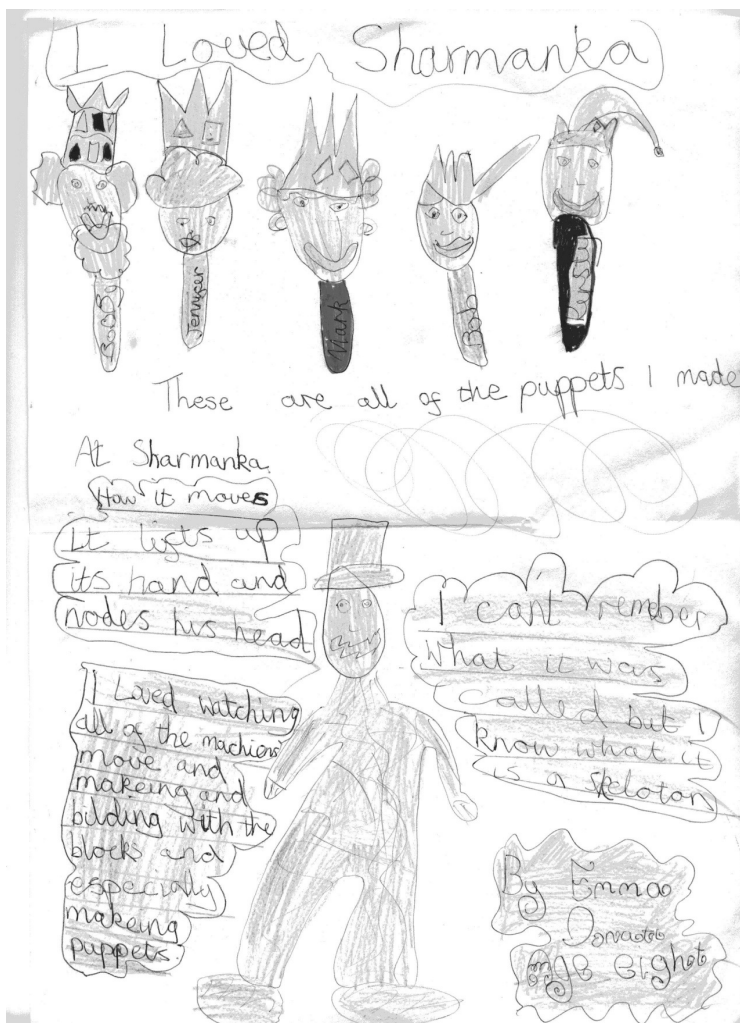 I Loved Sharmanka
Jennyfer
Mark
Bob
These are all of the puppets I made
At Sharmanka.
How it moves
it lifts up
its hand and
nodes his head
I Loved watching
all of the machiens
move and
makeing and
bilding with the
blocks and
especially
makeing
puppets.
I can't rember
what it was
called but I
know what it
is a skeloton
By Emma
Age eight